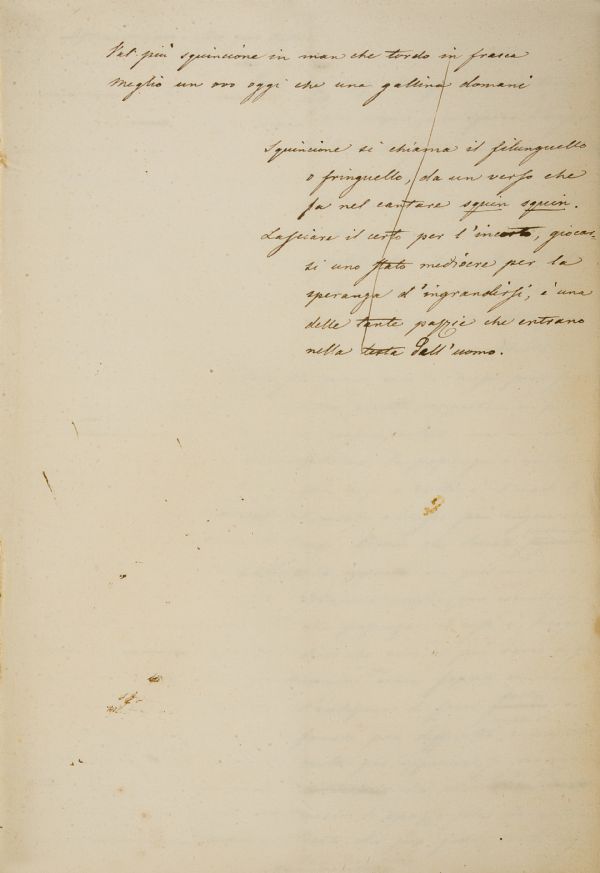 Val più squincione in man che tordo in frasca
Meglio un ovo oggi che una gallina domani
Squincione si chiama il filunguello
o fringuello, da un verso che
fa nel cantare squin squin.
Lasciare il certo per l'incerto, giocar-
si uno stato mediocre per la
speranza d'ingrandirsi, è una
delle tante pazzie che entrano
nella testa dall'uomo.